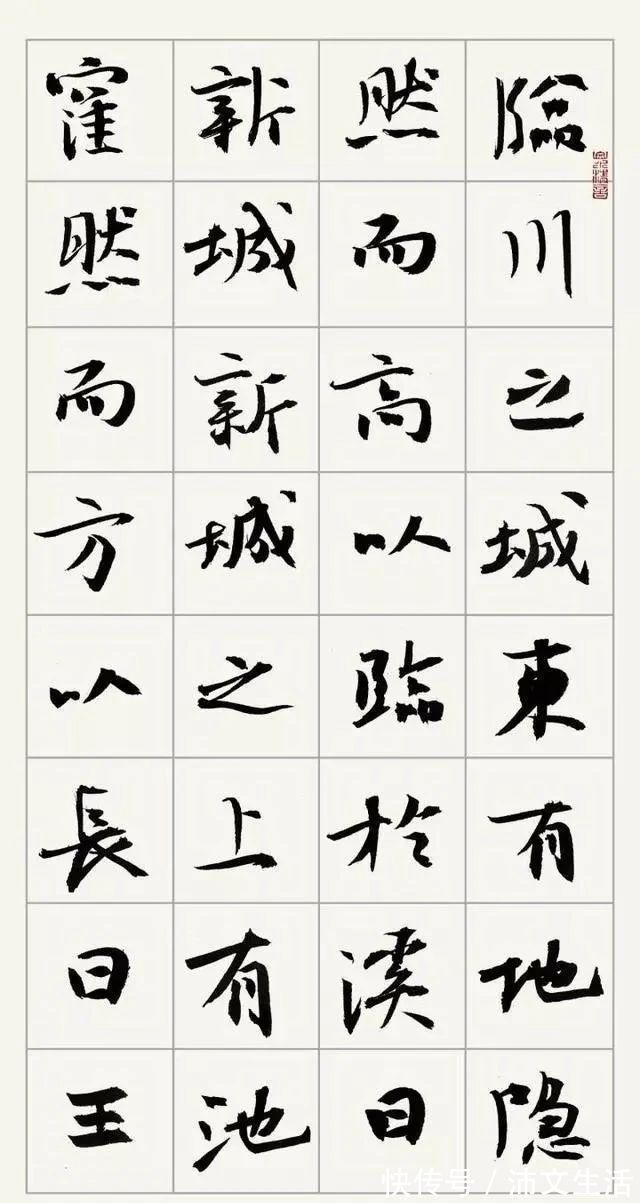 臨川之城東有地隐
然而高以臨於溪曰
新城新城之上有池
窪然而方以長曰王
快传号／沛文生活